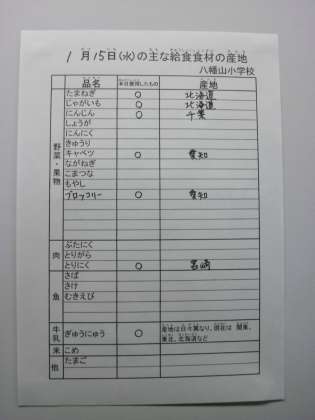 1月15日(水)の主な給食食材の産地
八幡山小学校
品名 本日使用したもの 産地
野菜・果物
たまねぎ ○ 北海道
じゃがいも ○ 北海道
にんじん ○ 千葉
しょうが
にんにく
きゅうり
キャベツ ○ 愛知
ながねぎ
こまつな
もやし
ブロッコリー ○ 愛知
肉
ぶたにく
とりがら
とりにく ○ 宮崎
魚
さば
さけ
むきえび
牛乳 ぎゅうにゅう ○ 産地は日々異なり、現在は 関東、
東北、北海道など
米 こめ
他 たまご